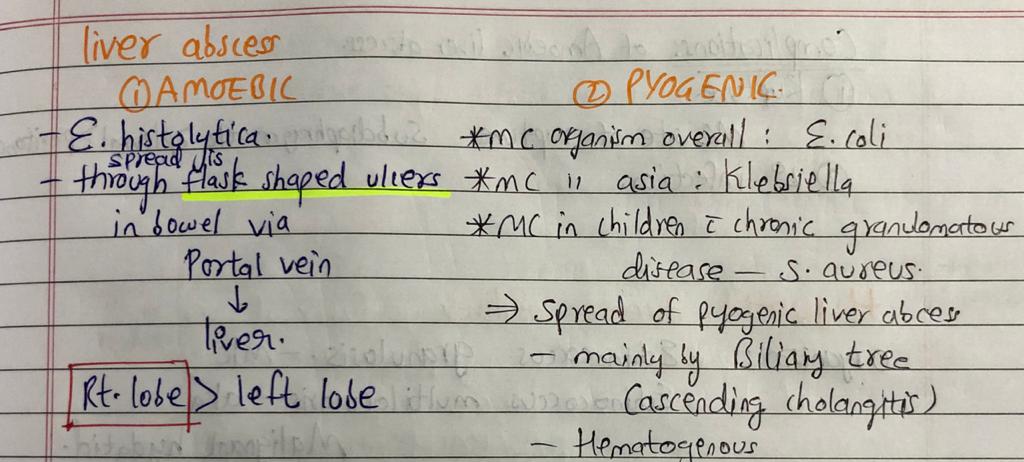 liver abscess
① AMOEBIC
- E. histolytica.
spread is
- through flask shaped ulcers
in bowel via
Portal vein
↓
liver.
Rt. lobe > left lobe
② PYOGENIC.
*MC organism overall : E. coli
*MC 〃 asia : Klebsiella
*MC in children c̄ chronic granulomatous
disease — S. aureus.
⇒ Spread of pyogenic liver abcess
- mainly by Biliary tree
(ascending cholangitis)
- Hematogenous